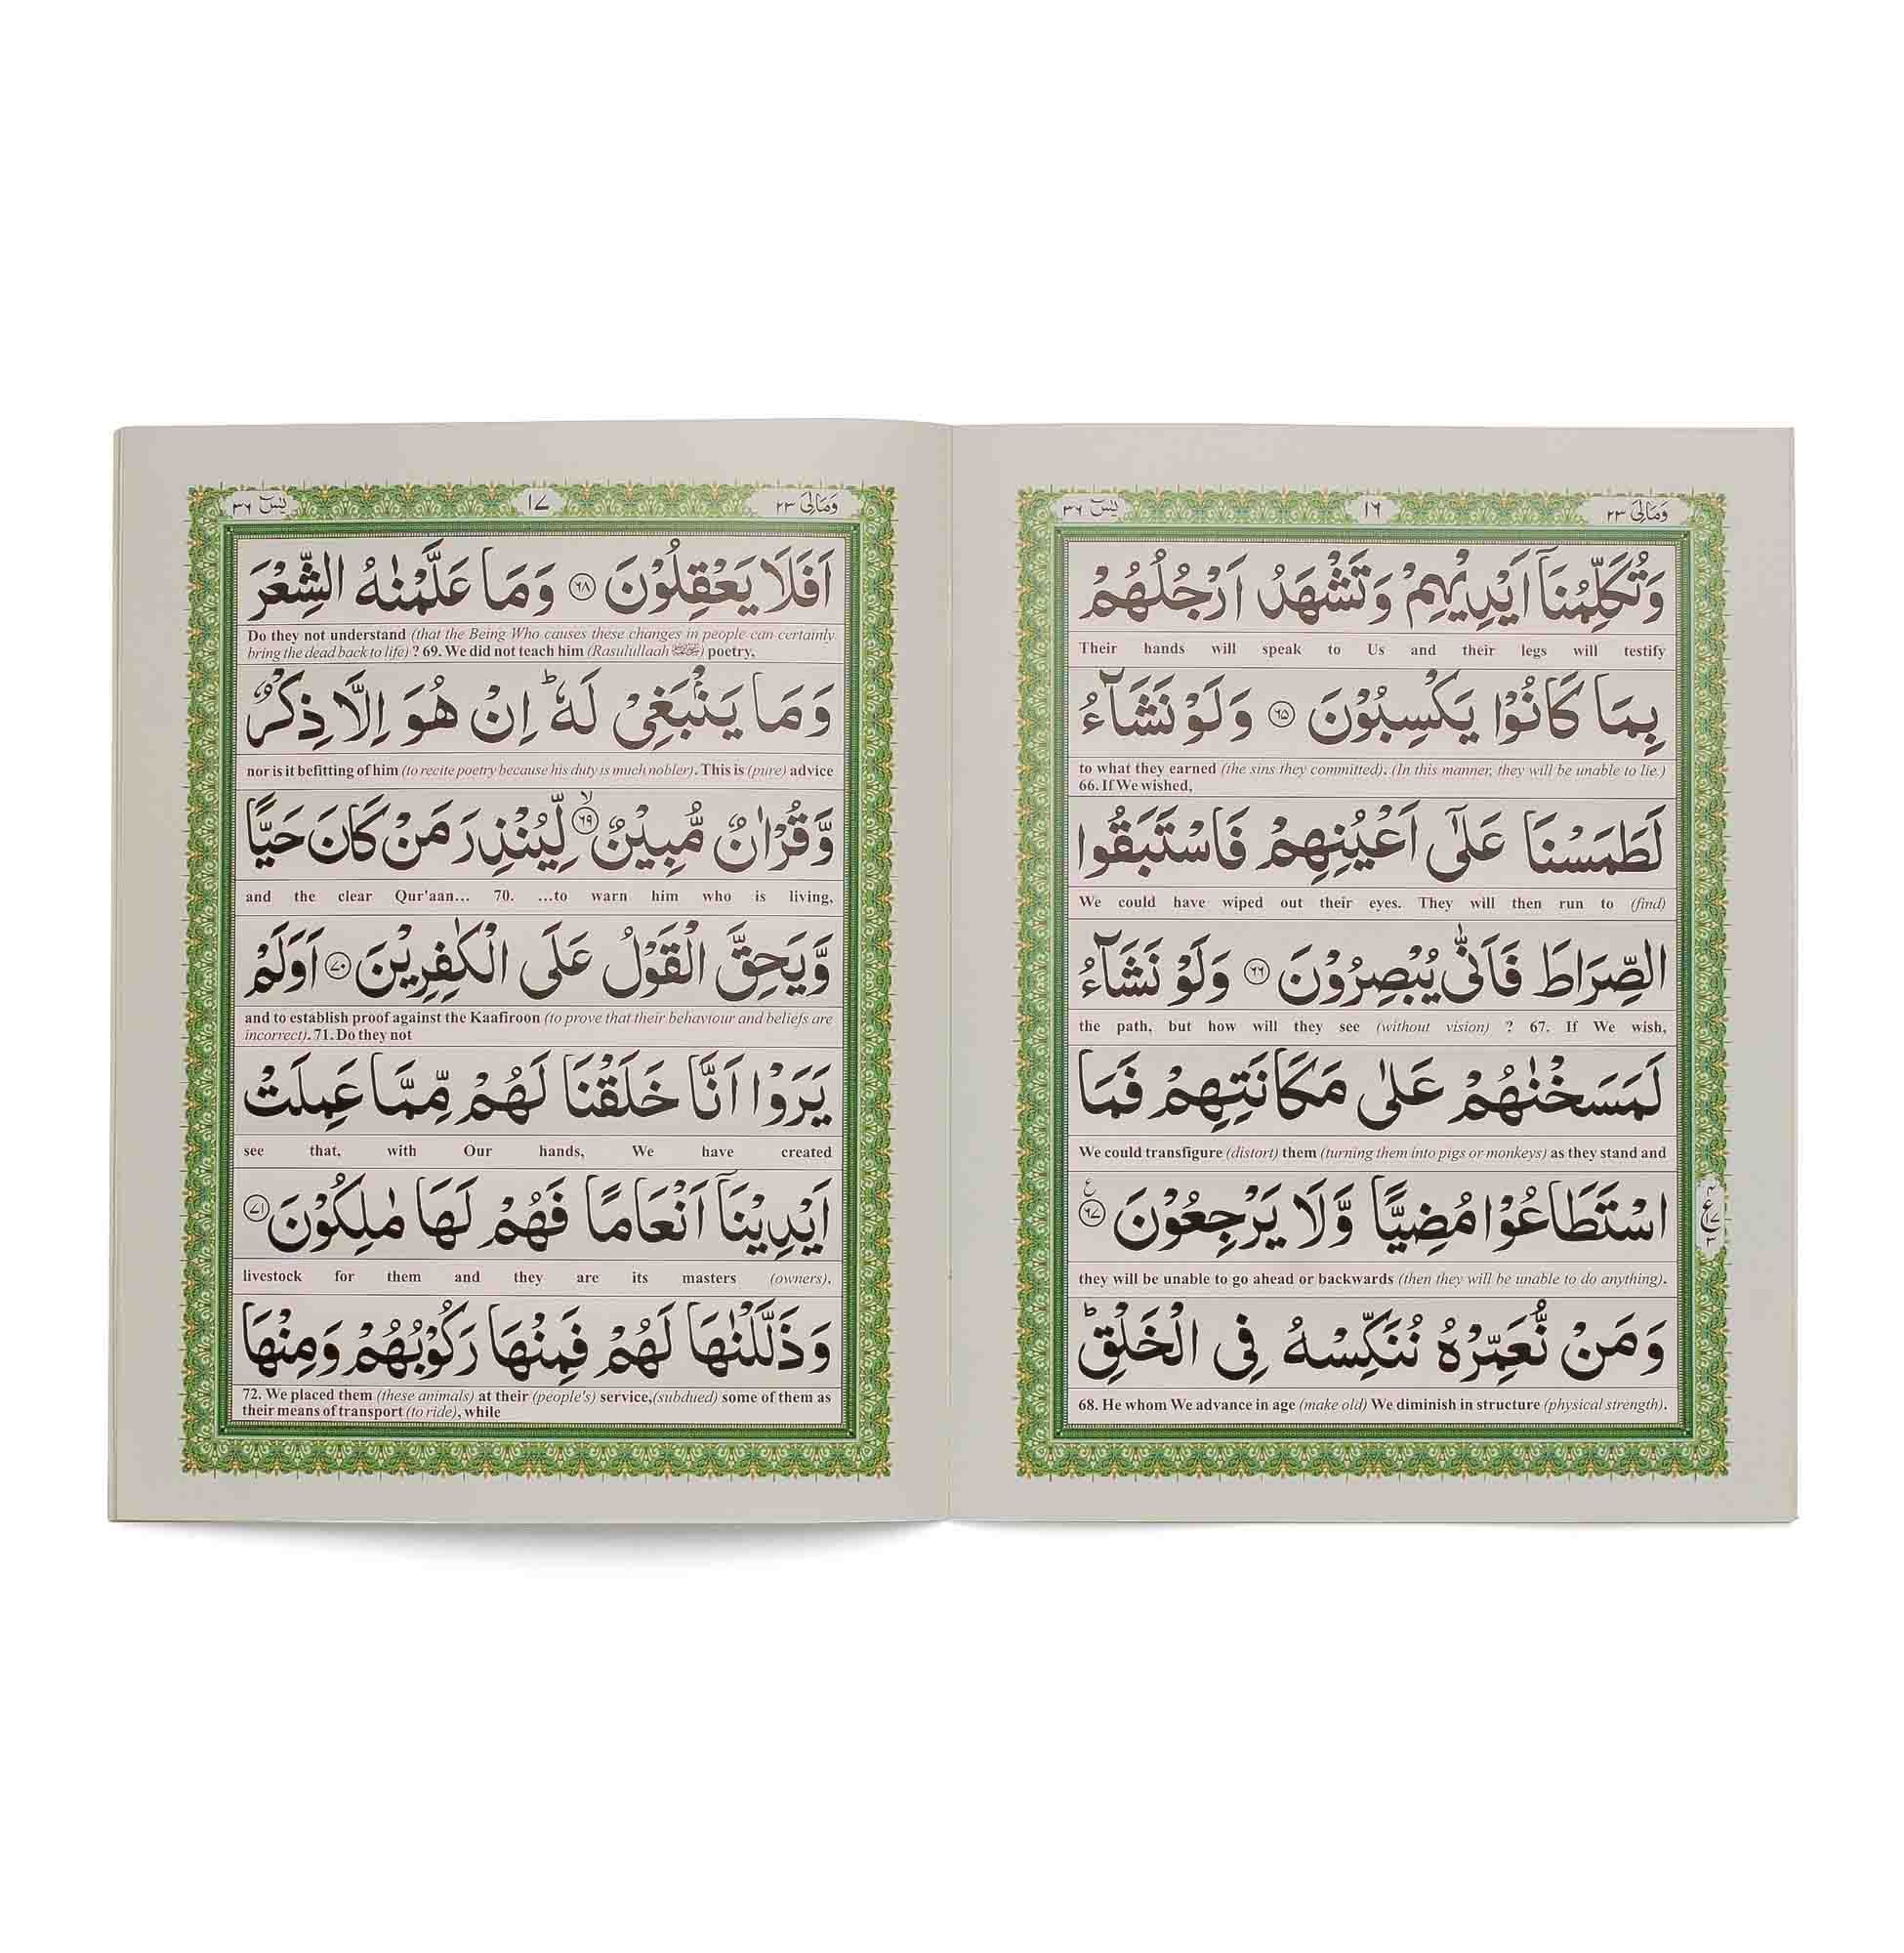 وَمَالِیَ ٢٣
١٦
يٰسٓ ٣٦
وَتُكَلِّمُنَاۤ اَيْدِيْهِمْ وَتَشْهَدُ اَرْجُلُهُمْ
Their hands will speak to Us and their legs will testify
بِمَا كَانُوْا يَكْسِبُوْنَ ﴿٦٥﴾ وَلَوْ نَشَآءُ
to what they earned (the sins they committed). (In this manner, they will be unable to lie.)
66. If We wished,
لَطَمَسْنَا عَلٰۤى اَعْيُنِهِمْ فَاسْتَبَقُوا
We could have wiped out their eyes. They will then run to (find)
الصِّرَاطَ فَاَنّٰى يُبْصِرُوْنَ ﴿٦٦﴾ وَلَوْ نَشَآءُ
the path, but how will they see (without vision) ? 67. If We wish,
لَمَسَخْنٰهُمْ عَلٰى مَكَانَتِهِمْ فَمَا
We could transfigure (distort) them (turning them into pigs or monkeys) as they stand and
اسْتَطَاعُوْا مُضِيًّا وَّلَا يَرْجِعُوْنَ ﴿٦٧﴾ ع
they will be unable to go ahead or backwards (then they will be unable to do anything).
وَمَنْ نُّعَمِّرْهُ نُنَكِّسْهُ فِى الْخَلْقِ ؕ
68. He whom We advance in age (make old) We diminish in structure (physical strength).
وَمَالِیَ ٢٣
١٧
يٰسٓ ٣٦
اَفَلَا يَعْقِلُوْنَ ﴿٦٨﴾ وَمَا عَلَّمْنٰهُ الشِّعْرَ
Do they not understand (that the Being Who causes these changes in people can certainly
bring the dead back to life) ? 69. We did not teach him (Rasulullaah ﷺ) poetry,
وَمَا يَنْۢبَغِىْ لَهٗ ؕ اِنْ هُوَ اِلَّا ذِكْرٌ
nor is it befitting of him (to recite poetry because his duty is much nobler). This is (pure) advice
وَّقُرْاٰنٌ مُّبِيْنٌ ﴿٦٩﴾ لا لِّيُنْذِرَ مَنْ كَانَ حَيًّا
and the clear Qur'aan... 70. ...to warn him who is living,
وَّيَحِقَّ الْقَوْلُ عَلَى الْكٰفِرِيْنَ ﴿٧٠﴾ اَوَلَمْ
and to establish proof against the Kaafiroon (to prove that their behaviour and beliefs are
incorrect). 71. Do they not
يَرَوْا اَنَّا خَلَقْنَا لَهُمْ مِّمَّا عَمِلَتْ
see that, with Our hands, We have created
اَيْدِيْنَاۤ اَنْعَامًا فَهُمْ لَهَا مٰلِكُوْنَ ﴿٧١﴾
livestock for them and they are its masters (owners).
وَذَلَّلْنٰهَا لَهُمْ فَمِنْهَا رَكُوْبُهُمْ وَمِنْهَا
72. We placed them (these animals) at their (people's) service,(subdued) some of them as
their means of transport (to ride), while